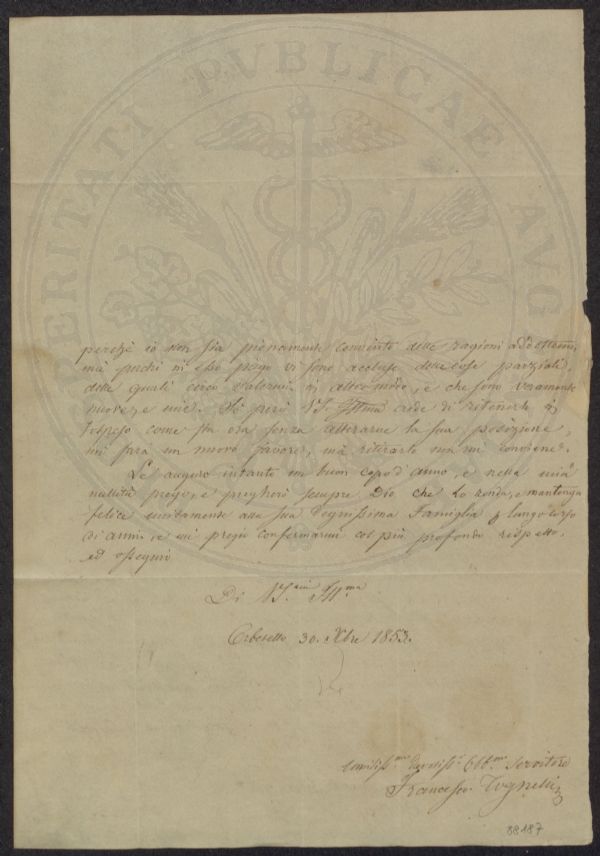 PERITATI PVBLICAE AVG
perchè io non sia pienamente convinto delle ragioni addottemi,
mà perchè in esso piego vi sono accluse delle cose parziali,
delle quali circo valermi in altro modo, e che sono veramente
nuove, e mie. Se però V.S. Illma crede di ritenerlo in
sospeso come fin ora senza alterarne la sua posizione,
mi farà un nuovo favore, mà ritirarlo non mi conviene.
Le auguro intanto un buon capo d'anno, e nella mia
nullità prego, e pregherò sempre Dio che Lo renda, e mantenga
felice unitamente alla sua Degnissima Famiglia p lungo corso
di anni, e mi pregio confermarmi col più profondo rispetto,
ed ossequio
Di V.S. Illma
Orbetello 30. Xbre 1853.
Servitore
Francesco
88187